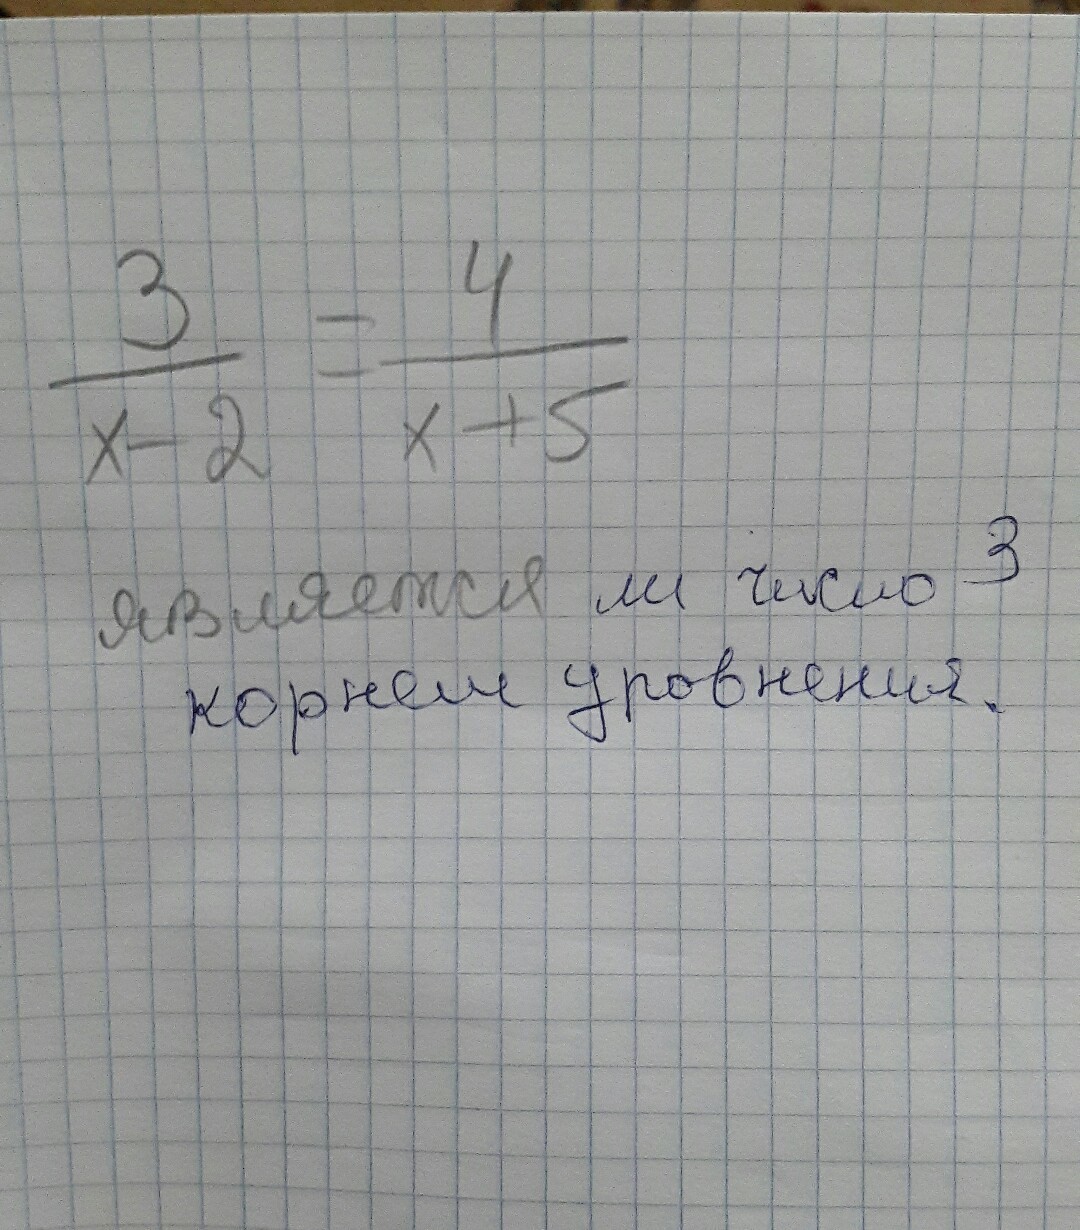 3/(x-2) = 4/(x+5)
является ли число 3
корнем уровнения.